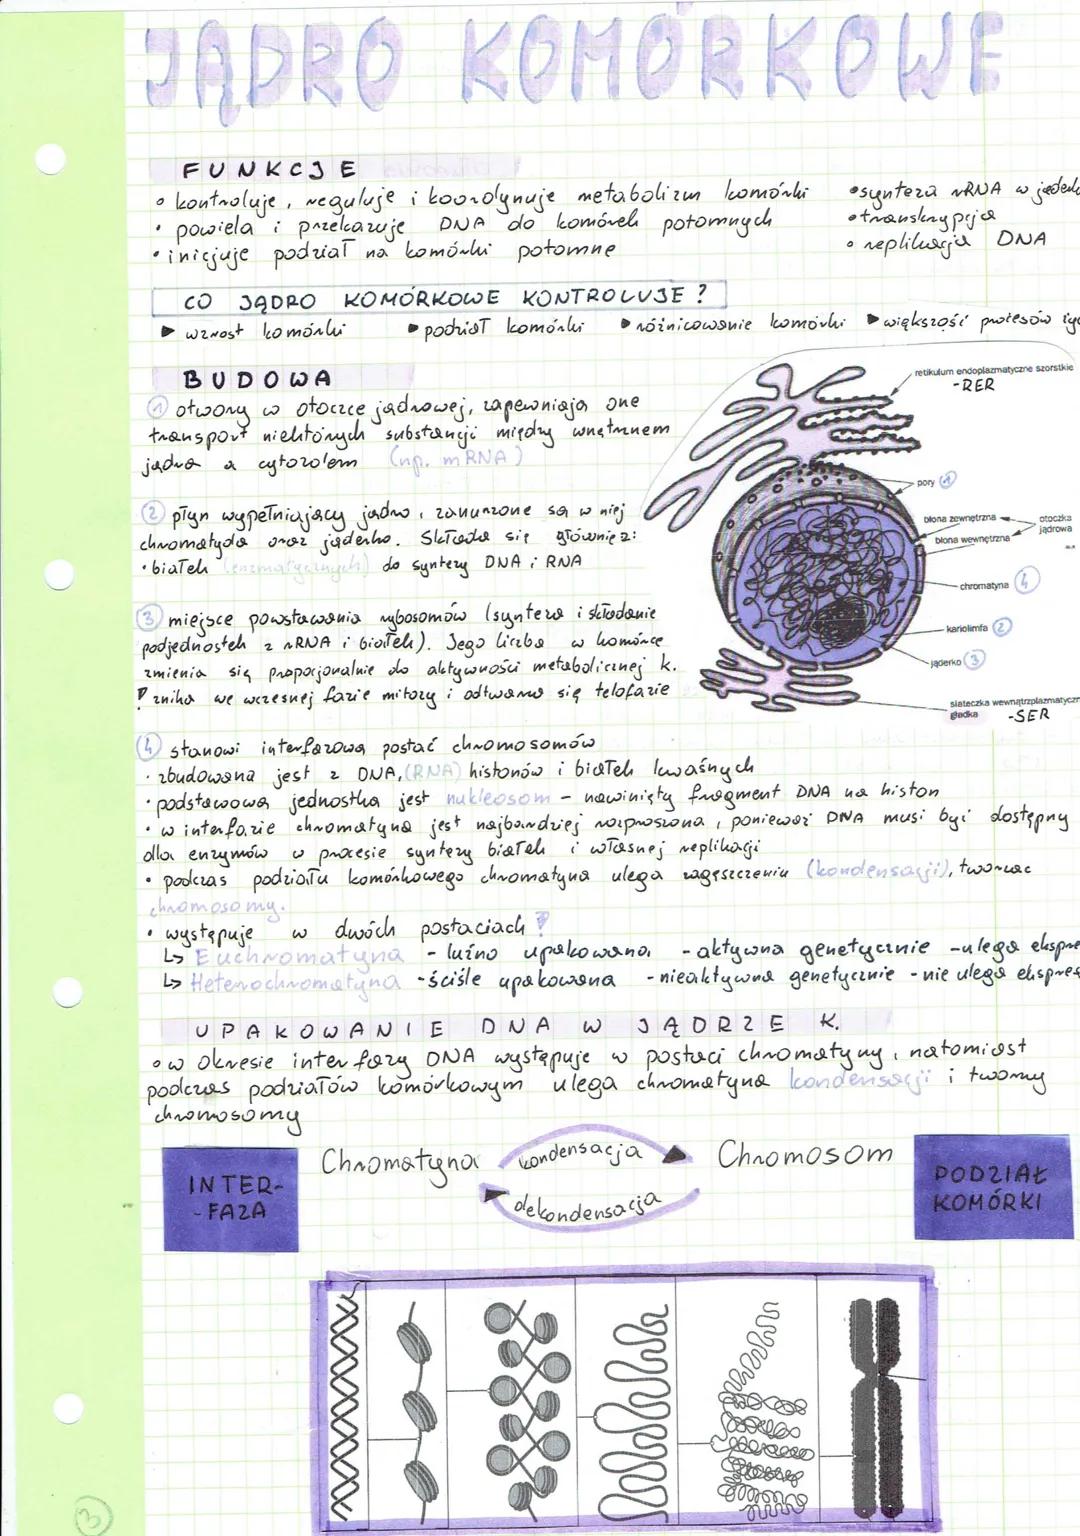 JĄDRO KOMÓRKOWE
FUNKCJE
• kontroluje, reguluje i koordynuje metabolizm komórki
• powiela i przekazuje DNA do komórek potomnych
• inicjuje podział na komórki potomne
• synteza rRNA w
• transkrypcja
• replikacja DNA
CO JĄDRO KOMÓRKOWE KONTROLUJE?
▶ wzrost komórki ▶ podział komórki ▶ różnicowanie komórki ▶ większość procesów
BUDOWA
① otwory w otoczce jądrowej, zapewniają one
transport niektórych substancji między wnętrzem
jądra a cytozolem (np. mRNA)
② płyn wypełniający jądro, zanurzone są w niej
chromatyda oraz jąderko. Składa się głównie z:
• białek (enzmatycznych) do syntezy DNA i RNA
③ miejsce powstawania rybosomów (synteza i składanie
podjednostek z rRNA i białek). Jego liczba w komórce
zmienia się proporcjonalnie do aktywności metabolicznej k.
znika we wczesnej fazie mitozy i odtwarza się telofazie
retikulum endoplazmatyczne szorstkie
-RER
pory ①
błona zewnętrzna
błona wewnętrzna
otoczka
jądrowa
chromatyna ④
kariolimfa ②
jąderko ③
siateczka
gładka -SER
④ stanowi interfazową postać chromosomów
• zbudowana jest z DNA, (RNA) histonów i białek kwaśnych
• podstawową jednostką jest nukleosom - nawinięty fragment DNA na histon
• w interfazie chromatyna jest najbardziej rozproszona, ponieważ DNA musi być dostępny
dla enzymów w procesie syntezy białek i własnej replikacji
• podczas podziału komórkowego chromatyna ulega zagęszczeniu (kondensacji), tworząc
chromosomy.
• występuje w dwóch postaciach
↳ Euchromatyna - luźno upakowana - aktywna genetycznie - ulega
↳ Heterochromatyna - ściśle upakowana - nieaktywna genetycznie - nie ulega
UPAKOWANIE DNA W JĄDRZE K.
• w okresie interfazy DNA występuje w postaci chromatyny, natomiast
podczas podziałów komórkowym ulega chromatyna kondensacji i tworzy
chromosomy
INTER-
-FAZA
Chromatyna
kondensacja
dekondensacja
Chromosom
PODZIAŁ
KOMÓRKI
3